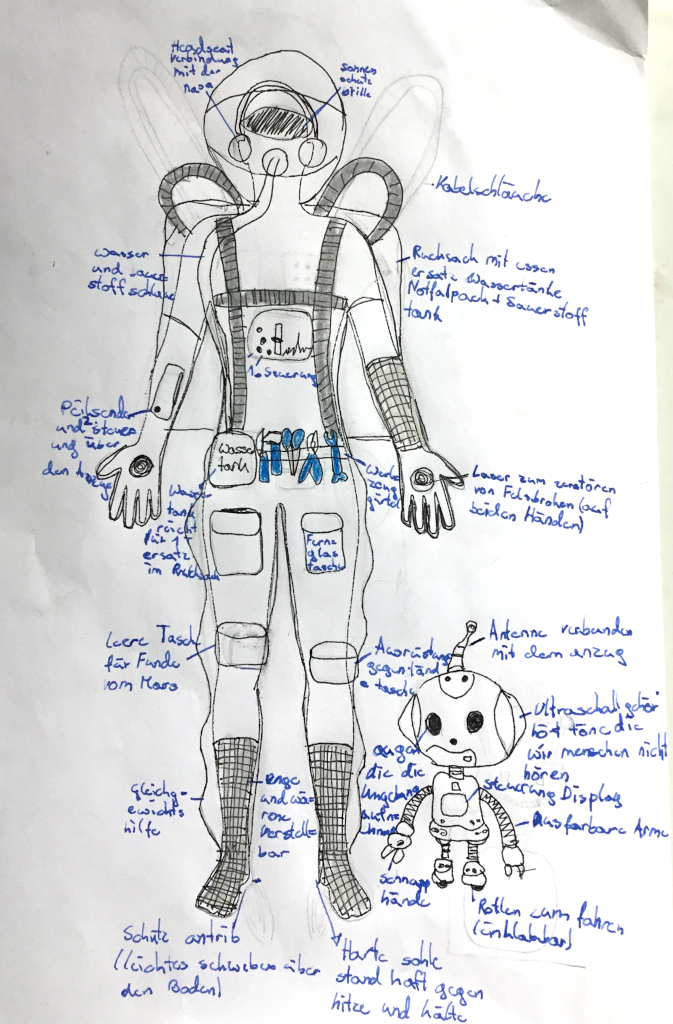 Headgeat
verbindung
mit der
nasa
sonnen
schutz
brille
Kabelschläuche
wasser
und sauer
stoffschlau
Rucksach mit essen
ersatz Wassertänke
Notfalpach + Sauerstoff
tank
1. Steuerung
Peilsender
und steuer
ung über
den Anzug
Wasser
tank
Wasser
tank
reicht
für 1
ersatz
im Rucksack
Werk
zeug
gürtel
Laser zum zerstören
von Felsbroken (auf
beiden Händen)
Fernz
glas
tasche
leere Tasche
für Funde
vom Mars
Ausrüstung
gegenständ
e tasche
Antenne verbunden
mit dem anzug
Ultraschallgehör
hört töne die
wir menschen nicht
hören
augen
die die
Umgebung
aufne
hmen
steuerung Display
Ausfarbare Arme
schnapp
hände
Rollen zum fahren
(einklabbar)
gleichg-
ewichts
hilfe
enge
und wä-
rme
verstell-
bar
Schutz antrib
(leichtes schweben über
den Boden)
Harte sohle
stand haft gegen
hitze und kälte